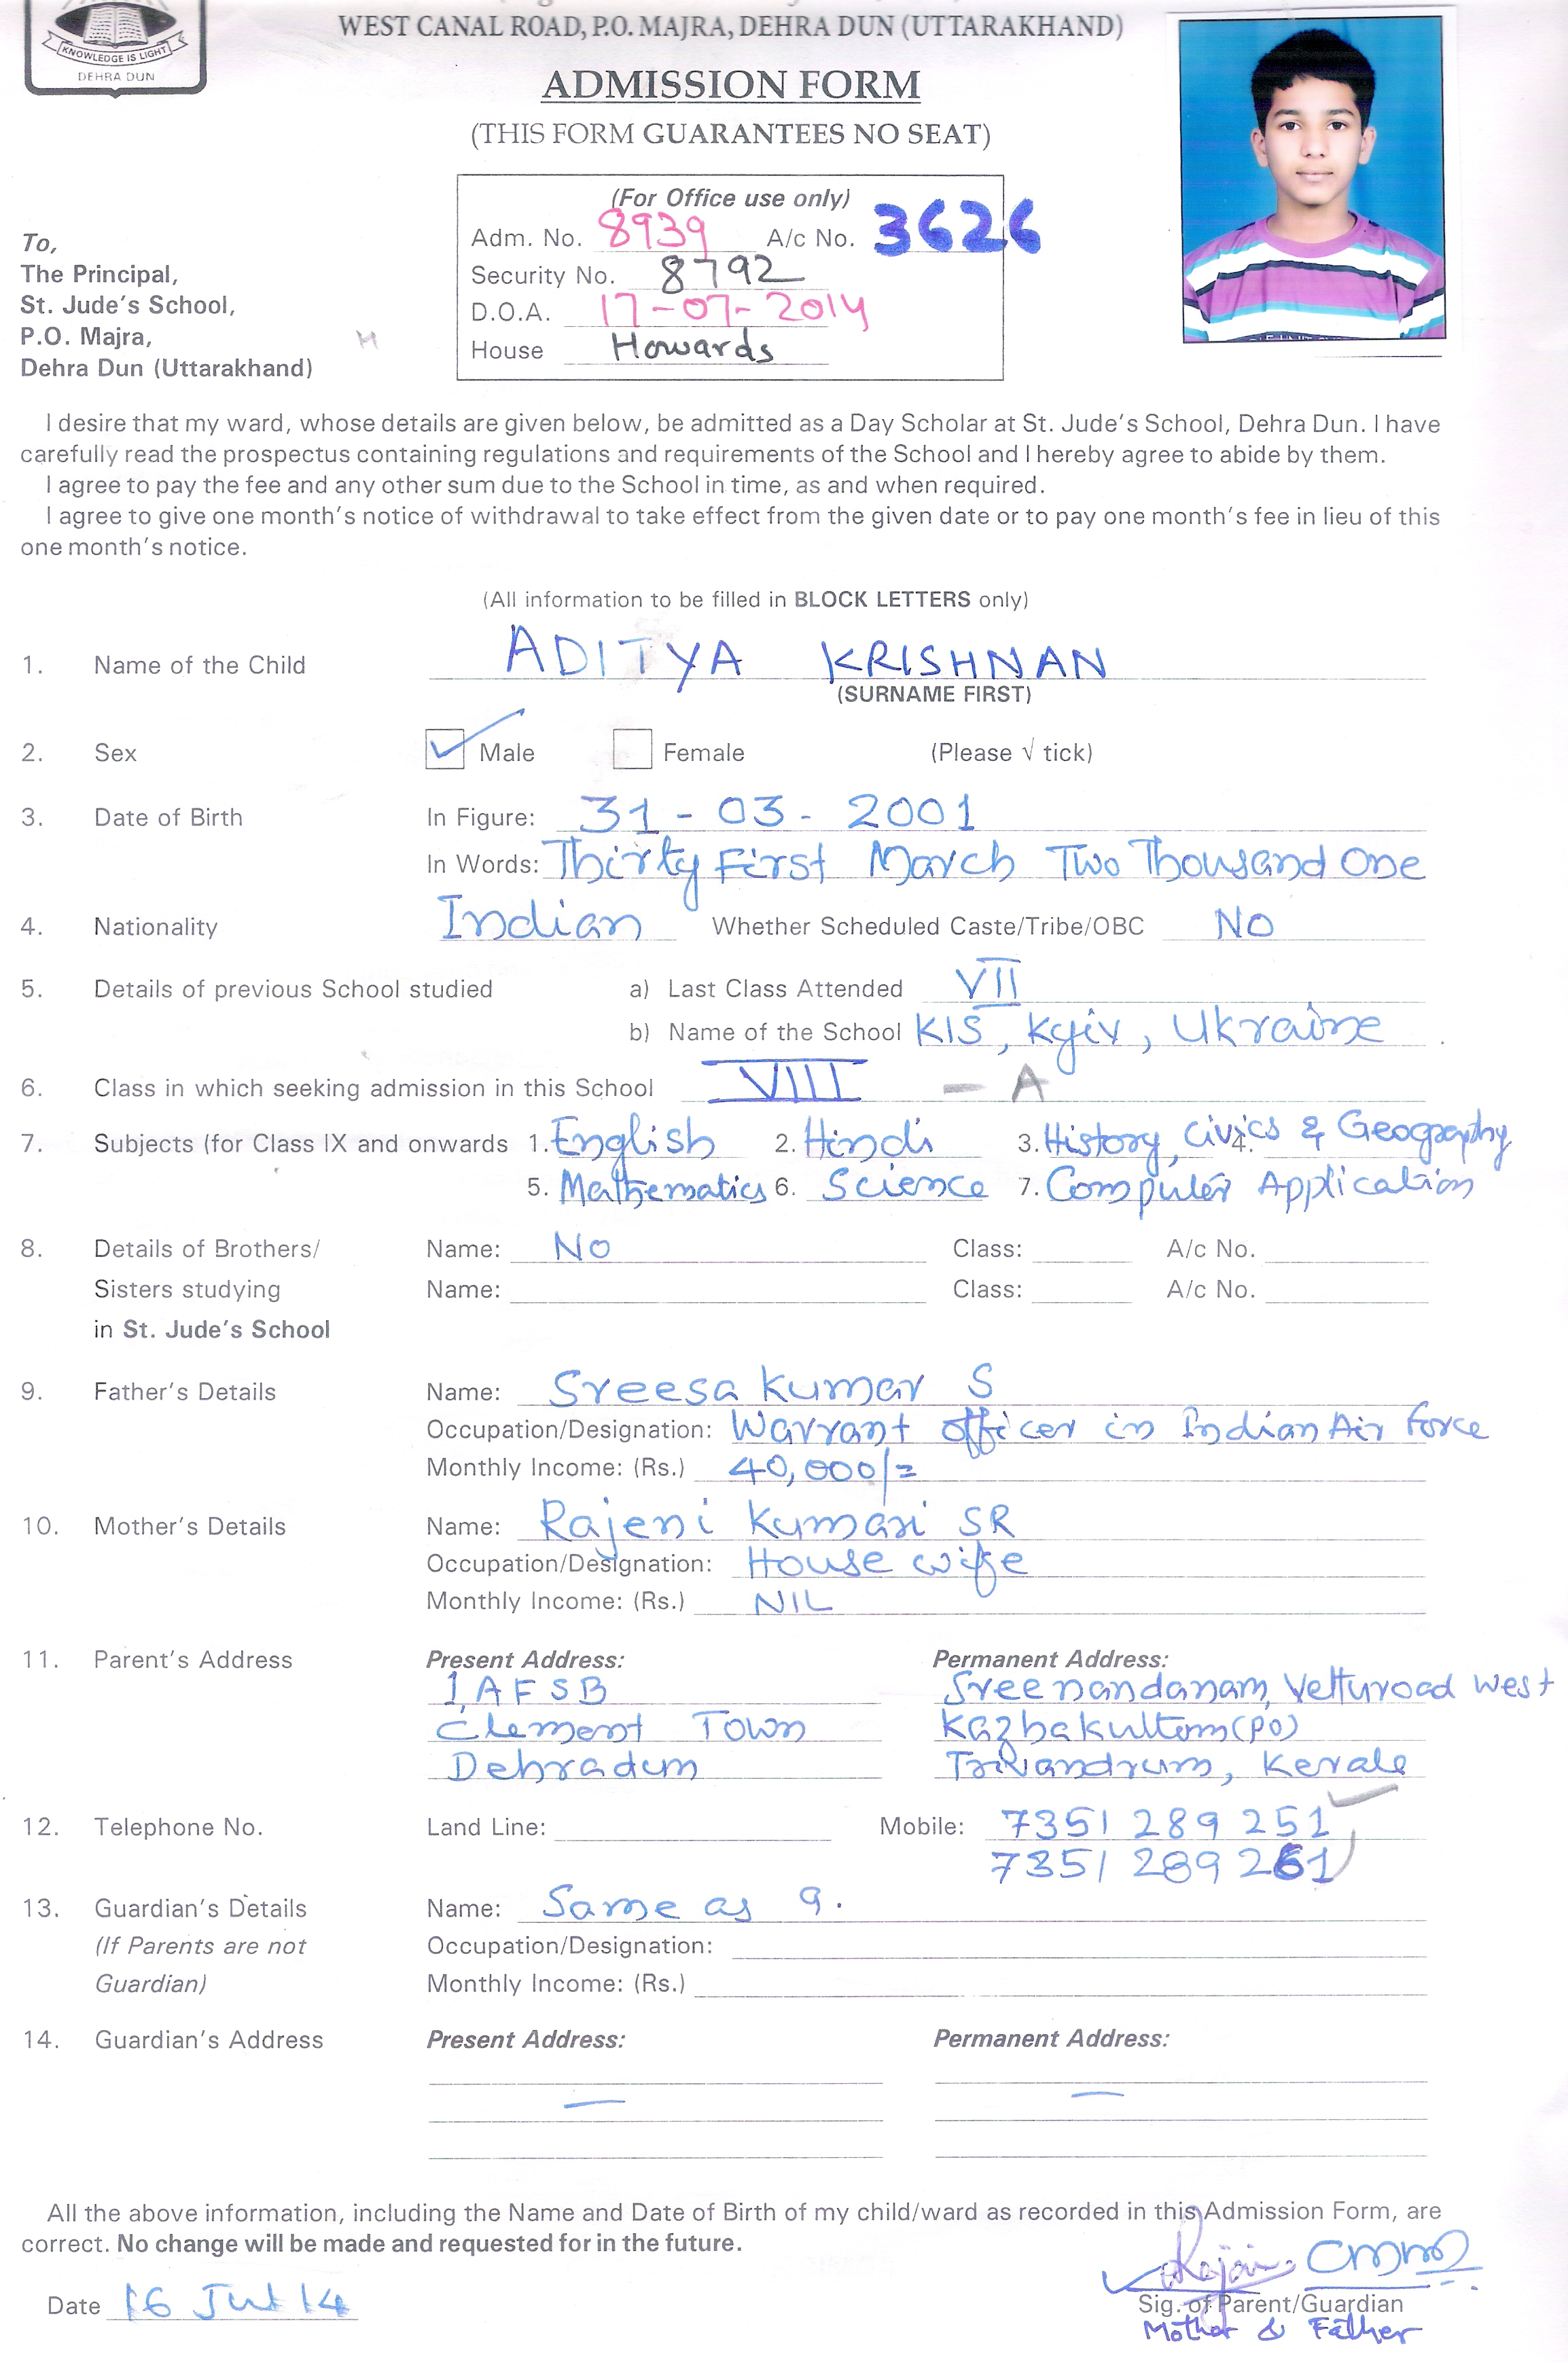 KNOWLEDGE IS LIGHT
DEHRA DUN
WEST CANAL ROAD, P.O. MAJRA, DEHRA DUN (UTTARAKHAND)
ADMISSION FORM
(THIS FORM GUARANTEES NO SEAT)
(For Office use only)
Adm. No. 8939 A/c No. 3626
Security No. 8792
D.O.A. 17-07-2014
House Howards
To,
The Principal,
St. Jude's School,
P.O. Majra,
Dehra Dun (Uttarakhand)
H
I desire that my ward, whose details are given below, be admitted as a Day Scholar at St. Jude's School, Dehra Dun. I have
carefully read the prospectus containing regulations and requirements of the School and I hereby agree to abide by them.
I agree to pay the fee and any other sum due to the School in time, as and when required.
I agree to give one month's notice of withdrawal to take effect from the given date or to pay one month's fee in lieu of this
one month's notice.
(All information to be filled in BLOCK LETTERS only)
1. Name of the Child ADITYA KRISHNAN
(SURNAME FIRST)
2. Sex Male Female (Please √ tick)
3. Date of Birth In Figure: 31-03-2001
In Words: Thirty First March Two Thousand One
4. Nationality Indian Whether Scheduled Caste/Tribe/OBC NO
5. Details of previous School studied a) Last Class Attended VII
b) Name of the School KIS, Kyiv, Ukraine
6. Class in which seeking admission in this School VIII - A
7. Subjects (for Class IX and onwards 1. English 2. Hindi 3. History, Civics & Geography 4.
5. Mathematics 6. Science 7. Computer Application
8. Details of Brothers/ Name: NO Class: A/c No.
Sisters studying Name: Class: A/c No.
in St. Jude's School
9. Father's Details Name: Sreesa Kumar S
Occupation/Designation: Warrant officer in Indian Air Force
Monthly Income: (Rs.) 40,000/=
10. Mother's Details Name: Rajeni Kumari SR
Occupation/Designation: House wife
Monthly Income: (Rs.) NIL
11. Parent's Address Present Address: Permanent Address:
1, AFSB Sreenandanam, Vetturoad West
Clement Town Kazhakuttom (PO)
Dehradun Trivandrum, Kerala
12. Telephone No. Land Line: Mobile: 7351 289 251
7351 289 261
13. Guardian's Details Name: Same as 9.
(If Parents are not Occupation/Designation:
Guardian) Monthly Income: (Rs.)
14. Guardian's Address Present Address: Permanent Address:
— —
All the above information, including the Name and Date of Birth of my child/ward as recorded in this Admission Form, are
correct. No change will be made and requested for in the future.
Date 16 Jul 14
Sig. of Parent/Guardian
Mother & Father